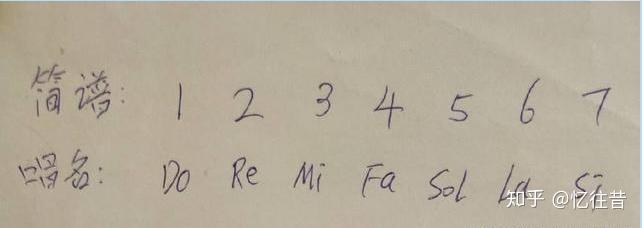 简谱: 1 2 3 4 5 6 7
唱名: Do Re Mi Fa Sol La Si
知乎 @忆往昔